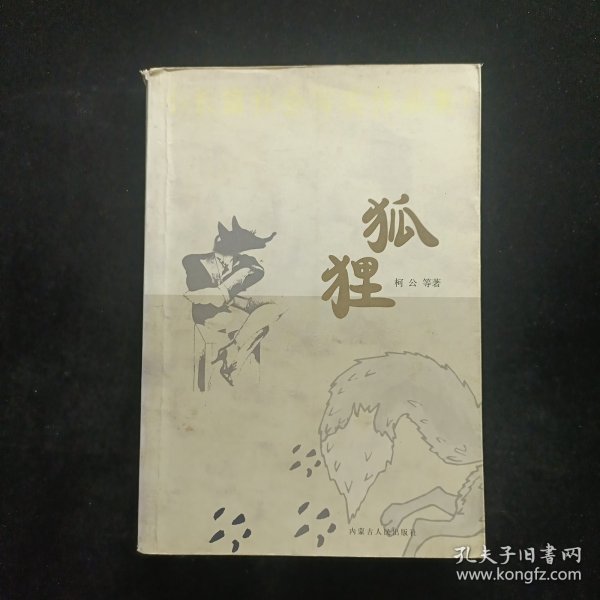 狐狸
柯公 等著
内蒙古人民出版社
孔夫子旧书网
www.kongfz.com